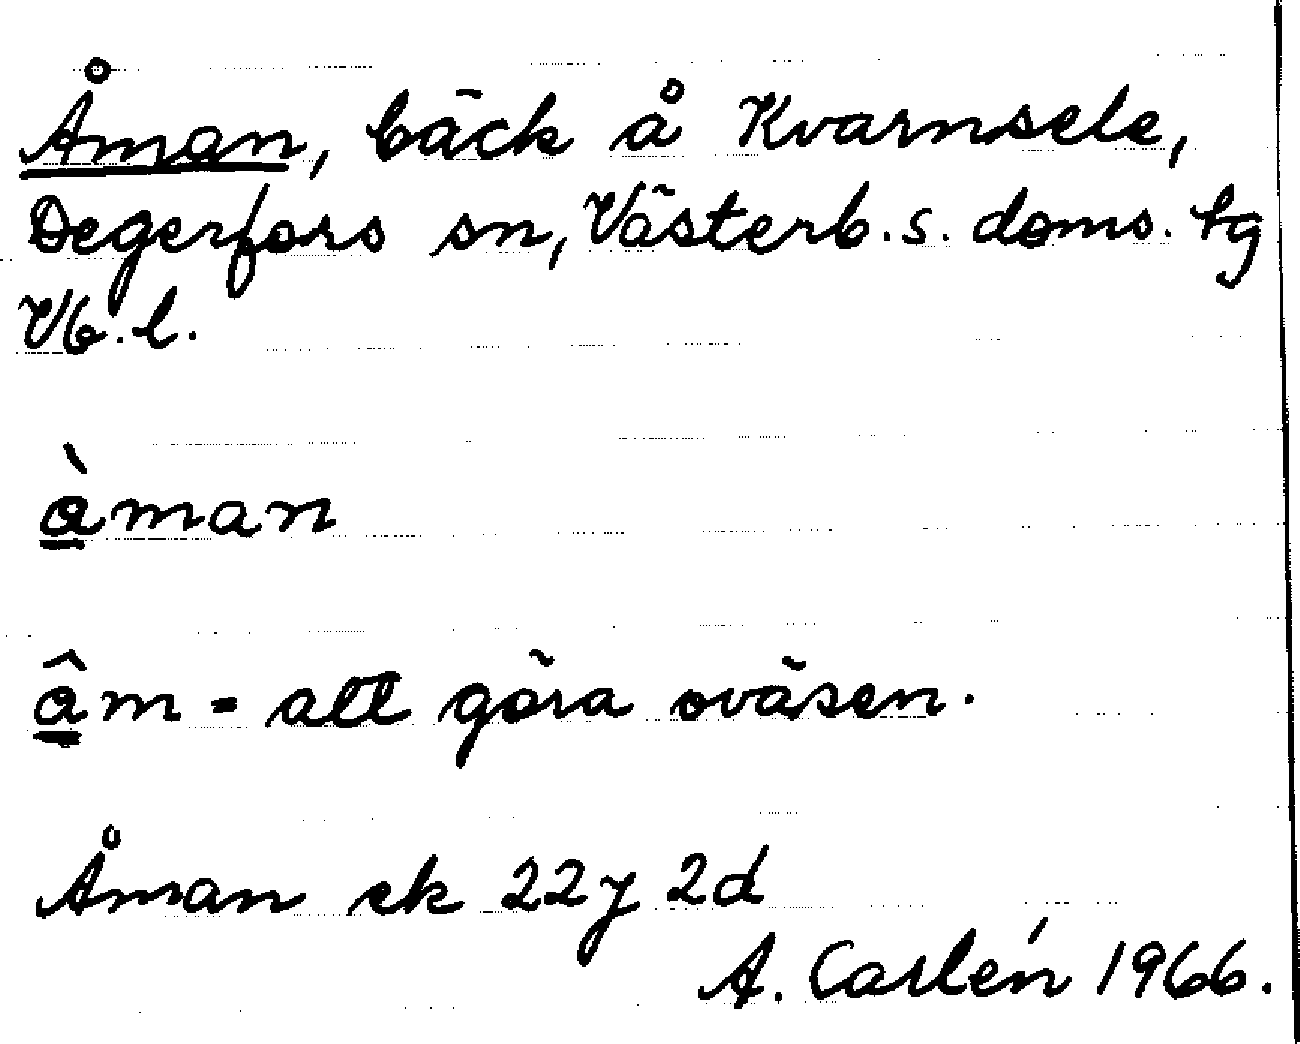 Åman, bäck å Kvarnsele,
Degerfors sn, Västerb. s. doms. tg
Vb. l.
à̲man
â̲m = att göra oväsen.
Åman ek 22 j 2d
A. Carlén 1966.